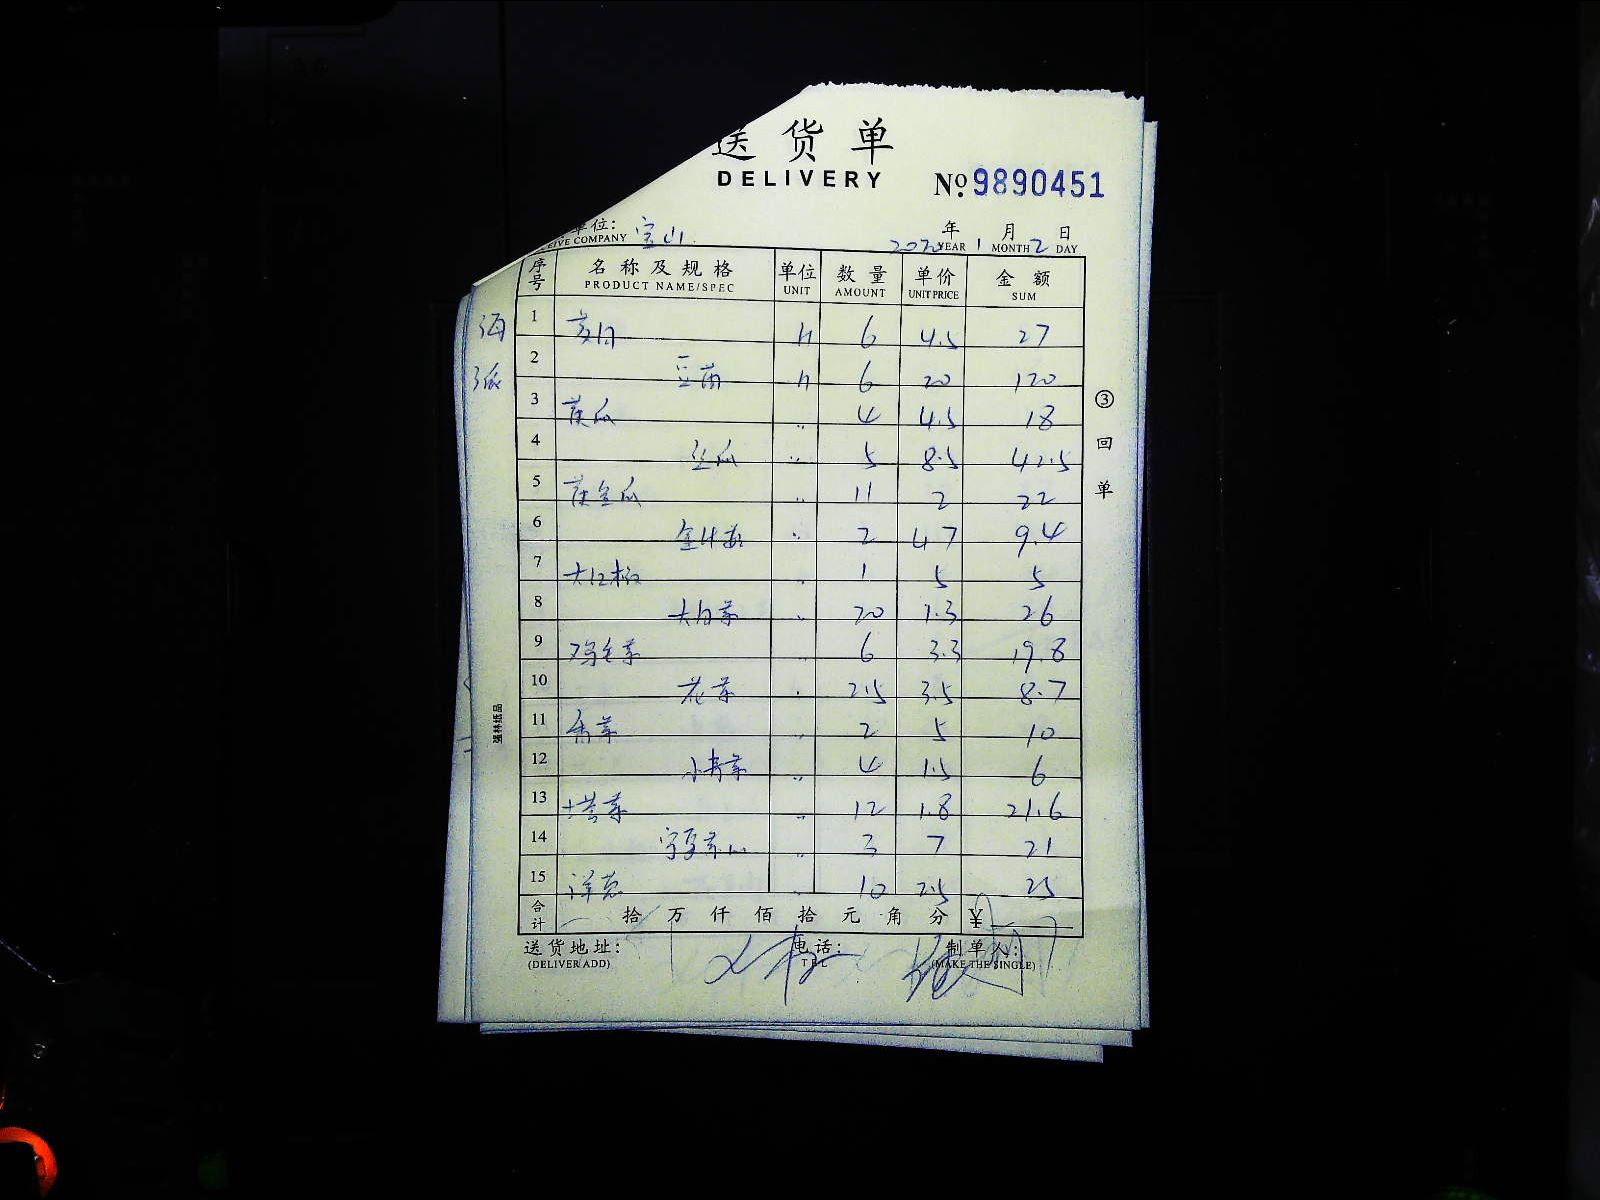 送 货 单
DELIVERY
No 9890451
单位: 宝山
EIVE COMPANY
2020 年 1 月 2 日
YEAR MONTH DAY
序号 名称及规格 单位 数量 单价 金额
PRODUCT NAME/SPEC UNIT AMOUNT UNIT PRICE SUM
海派
1 6 4.5 27
2 豆苗 6 20 120
3 黄瓜 〃 4 4.5 18
4 丝瓜 〃 5 8.5 42.5
5 黄金瓜 〃 11 2 22
6 金针菇 〃 2 4.7 9.4
7 大红椒 〃 1 5 5
8 大白菜 〃 20 1.3 26
9 鸡毛菜 〃 6 3.3 19.8
10 花菜 〃 2.5 3.5 8.7
11 香菜 〃 2 5 10
12 小青菜 〃 4 1.5 6
13 塔菜 〃 12 1.8 21.6
14 宁夏菜心 〃 3 7 21
15 洋葱 〃 10 2.5 25
合计 拾 万 仟 佰 拾 元 角 分 ¥
送货地址: 电话: 制单人:
(DELIVER ADD) TEL (MAKE THE SINGLE)
③ 回 单
强林纸品